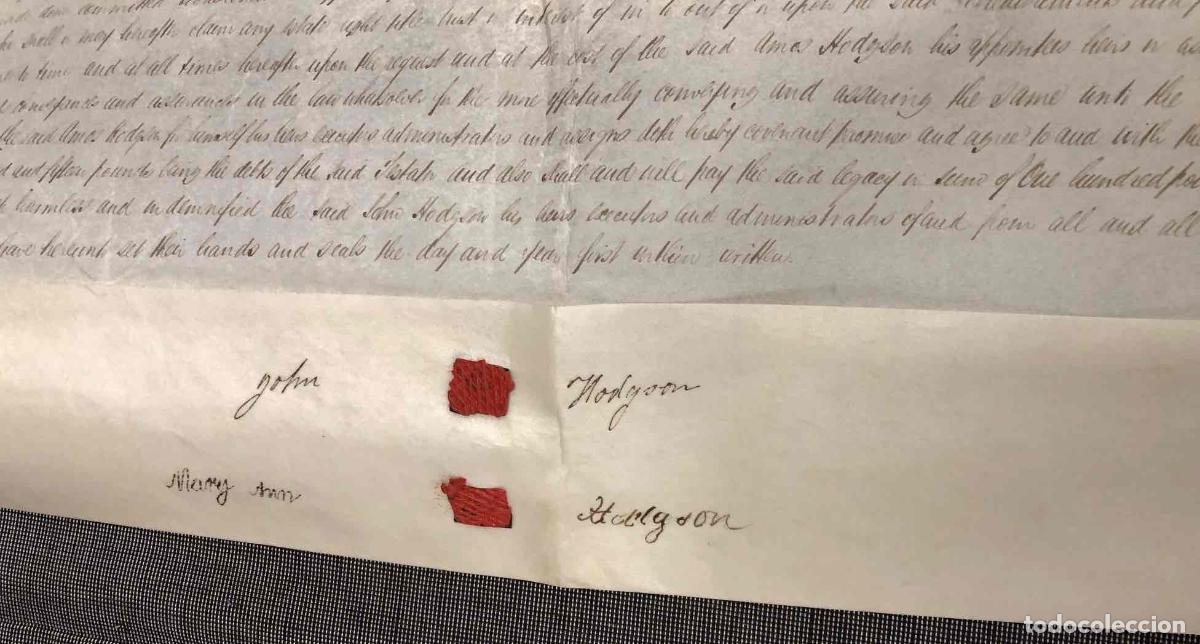 shall or may hereafter claim any estate right title trust or interest of in to out of or upon the said
time and at all times hereafter upon the request and at the cost of the said Amos Hodgson his appointees heirs or
conveyances and assurances in the law whatsoever for the more effectually conveying and assuring the same unto the
the said Amos Hodgson for himself his heirs executors administrators and assigns doth hereby covenant promise and agree to and with the
and fifteen pounds being the debts of the said Testator and also shall and will pay the said legacy or sum of One hundred
harmless and indemnified the said John Hodgson his heirs executors and administrators of and from all and all
have hereunto set their hands and seals the day and year first within written.
John Hodgson
Mary Ann Hodgson
todocoleccion